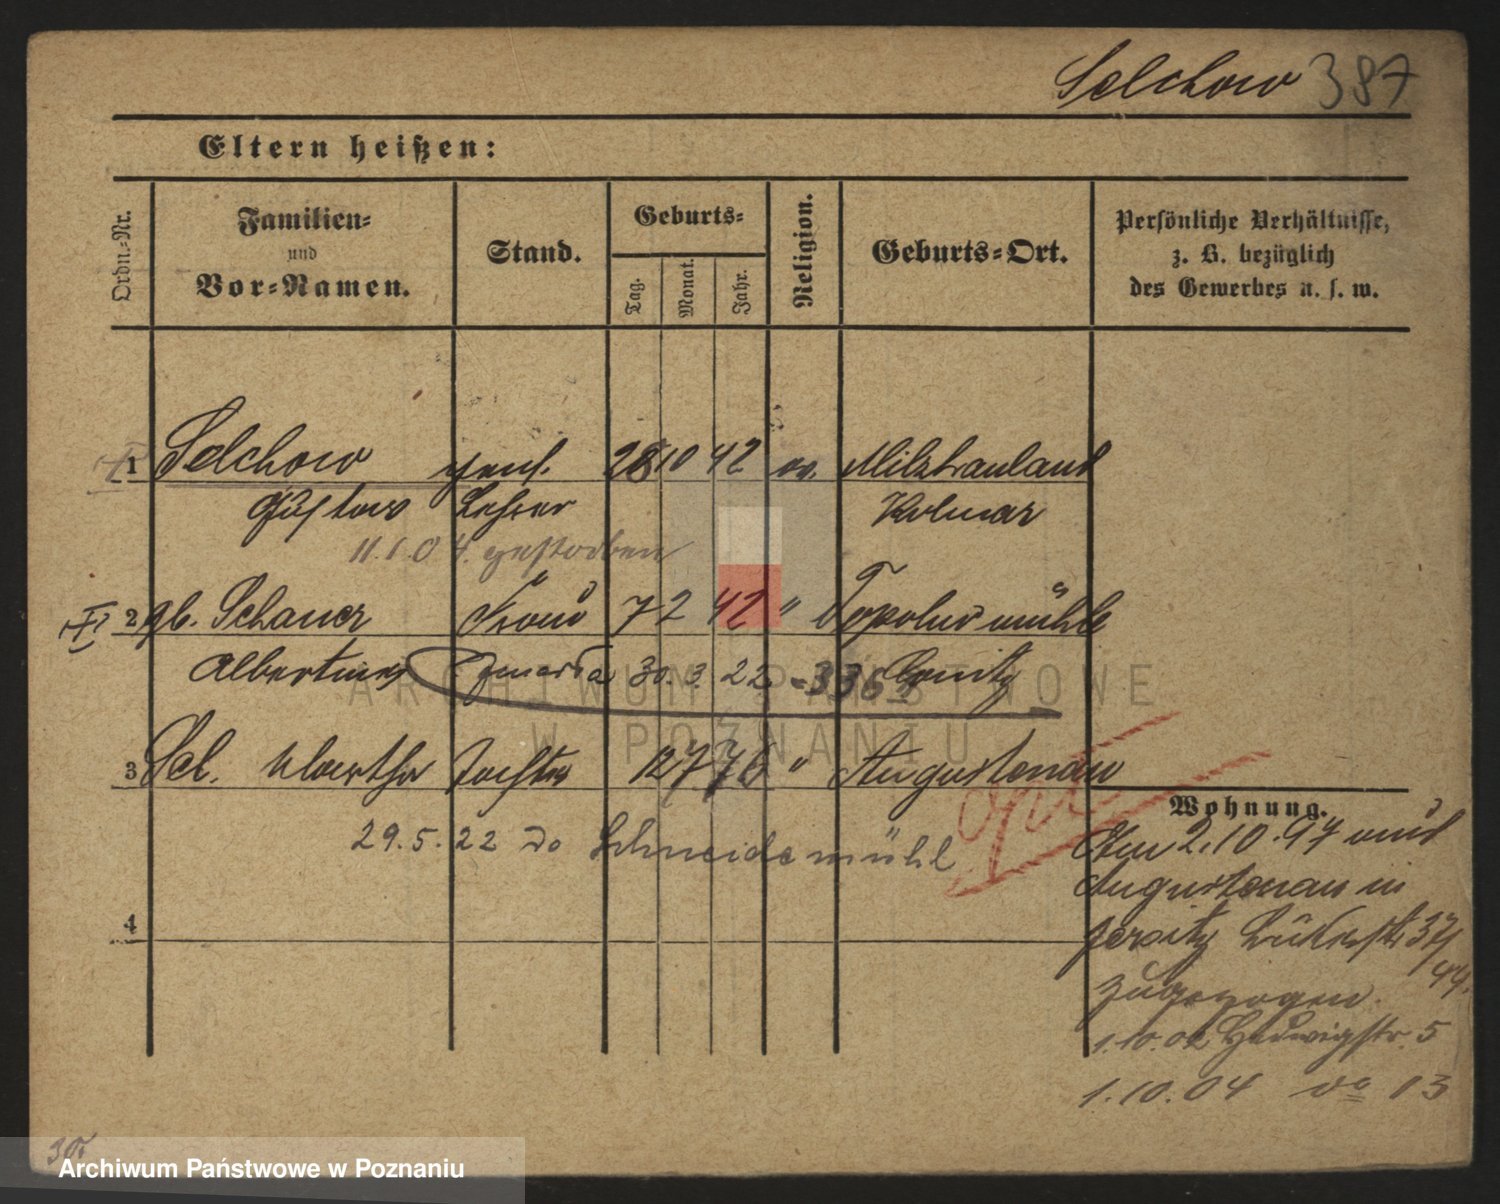 Selchow 387
Eltern heißen:
Ordn.-Nr.
Familien-
und
Vor-Namen.
Stand.
Geburts-
Tag.
Monat.
Jahr.
Religion.
Geburts-Ort.
Persönliche Verhältnisse,
z. B. bezüglich
des Gewerbes u. s. w.
1 Selchow pens. 28 10 42 ev. Milzhauland
Gustav Lehrer Kolmar
11.1.04. gestorben
2 gb. Schauer Frau 7 2 42 " Topolno mühle
Albertine 30. 3. 22
3 Sel. Martha Tochter 12 7 76 " Augustenau
29.5.22 do Schneidemühl
4
Wohnung.
Am 2.10.97 aus
Augustenau in
Jersitz 37/
44.
zugezogen.
1.10.02 Hedwigstr. 5
1.10.04 do 13
ARCHIWUM PAŃSTWOWE
W POZNANIU
Archiwum Państwowe w Poznaniu